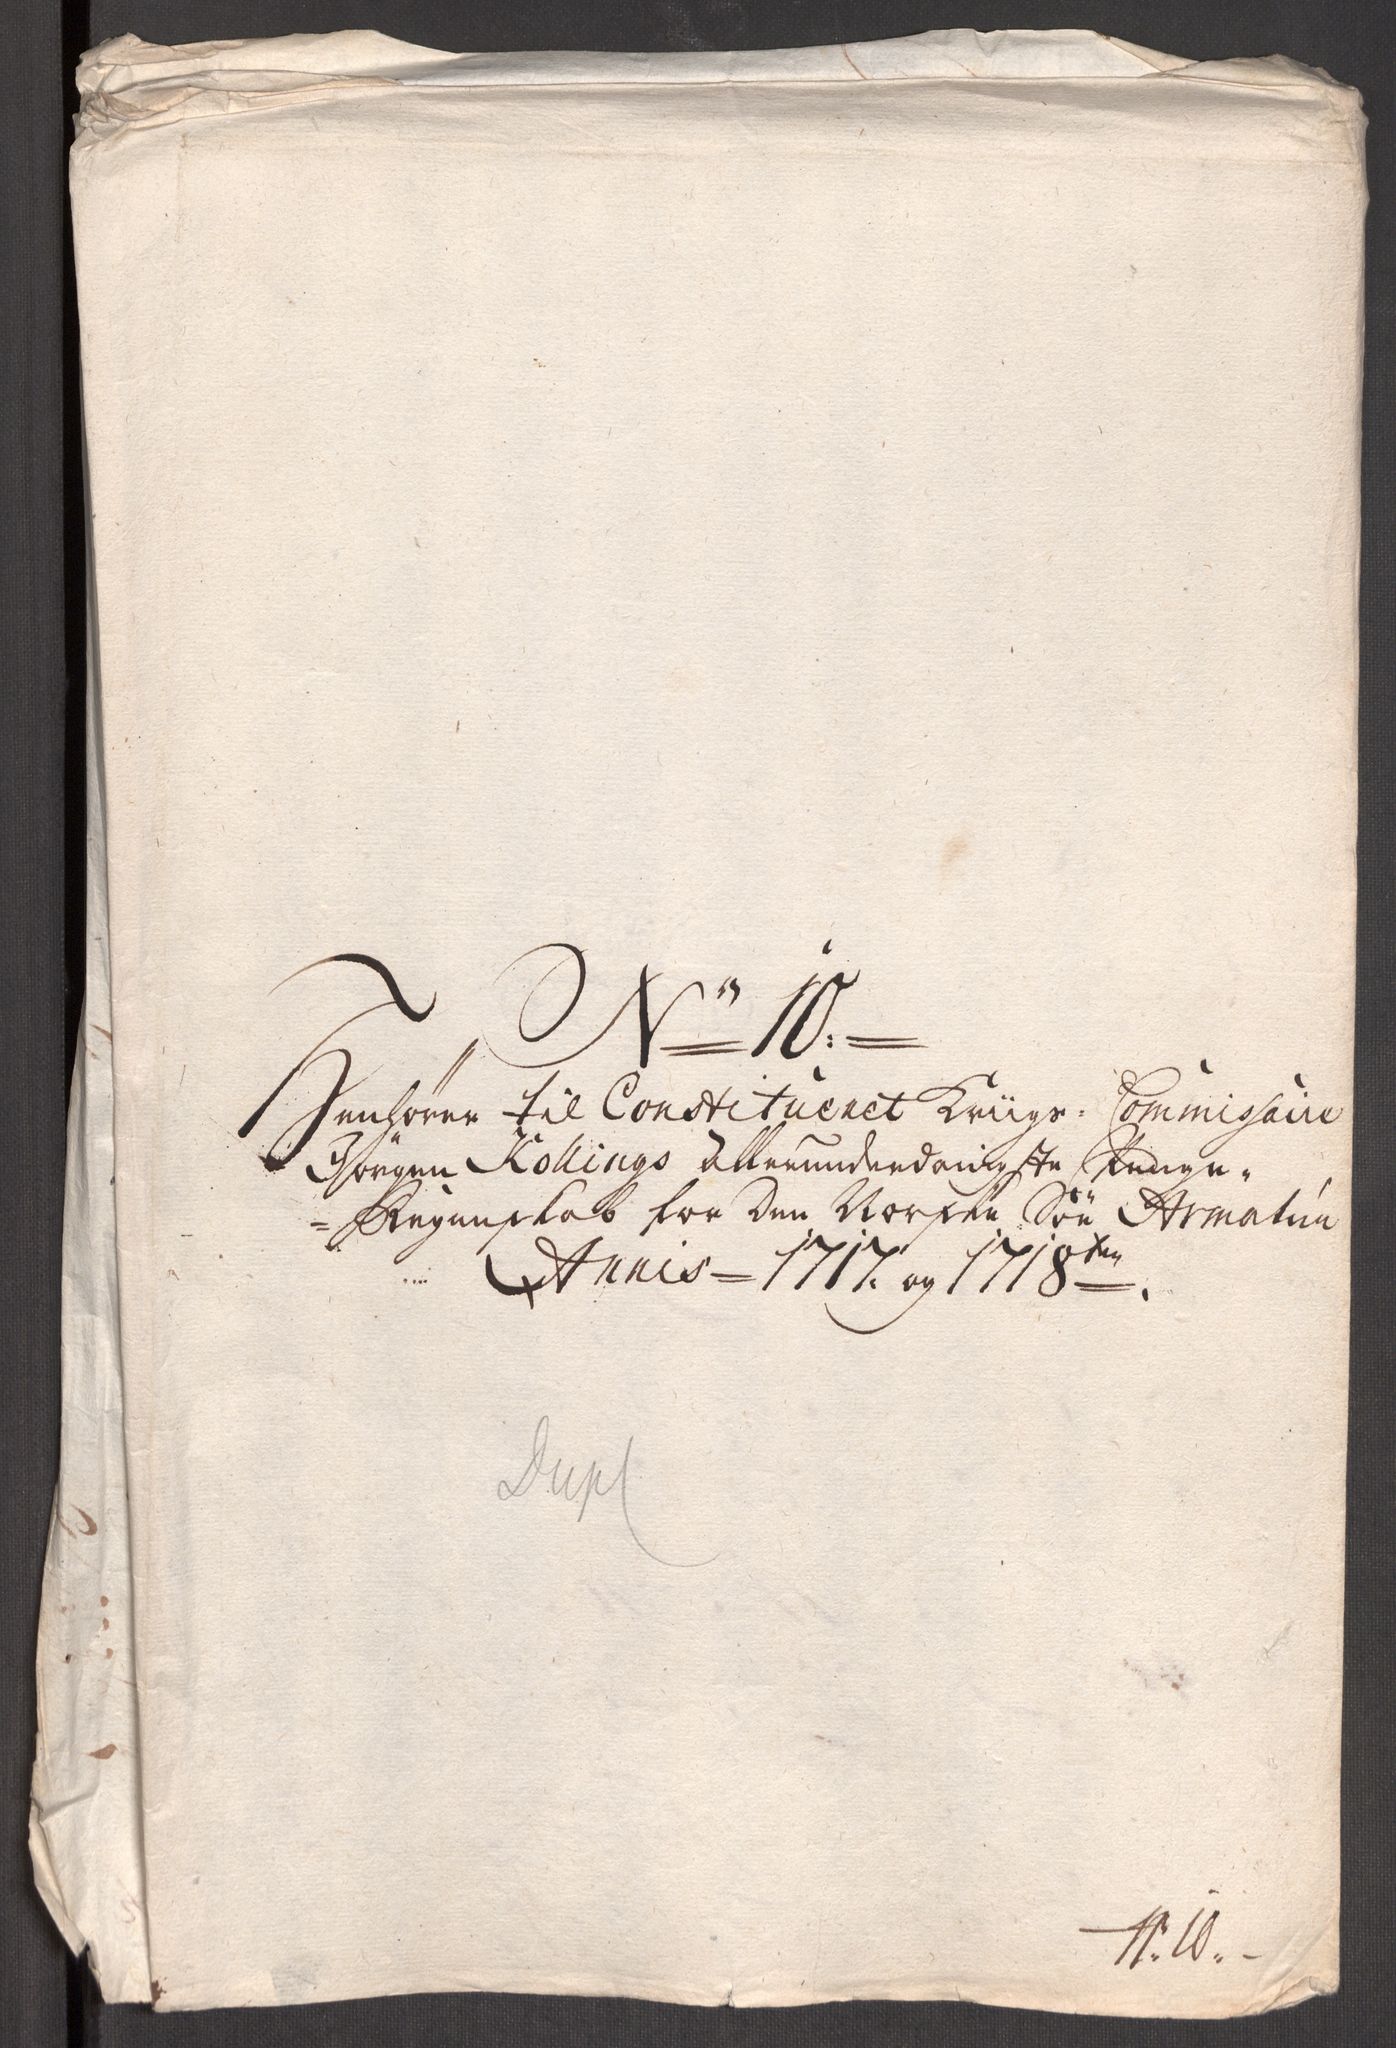 No 10.
Henhörer til Constitueret Kriigs-Commissaire
Jörgen Kollings allerunderdanigste Penge-
=Regenskab for den Norske Söe Armatur
Annis 1717. og 1718ten.
Dupl
N. 10.